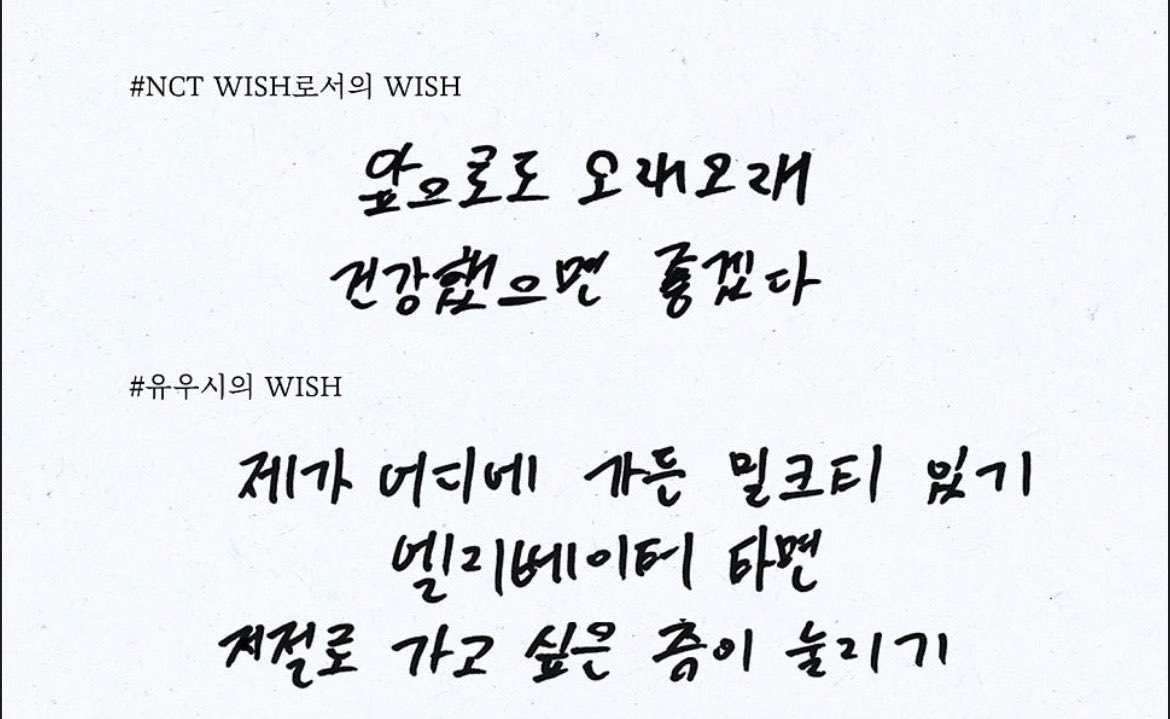 #NCT WISH로서의 WISH
앞으로도 오래오래
건강했으면 좋겠다
#유우시의 WISH
제가 어디에 가든 밀크티 있기
엘리베이터 타면
저절로 가고 싶은 층이 눌리기